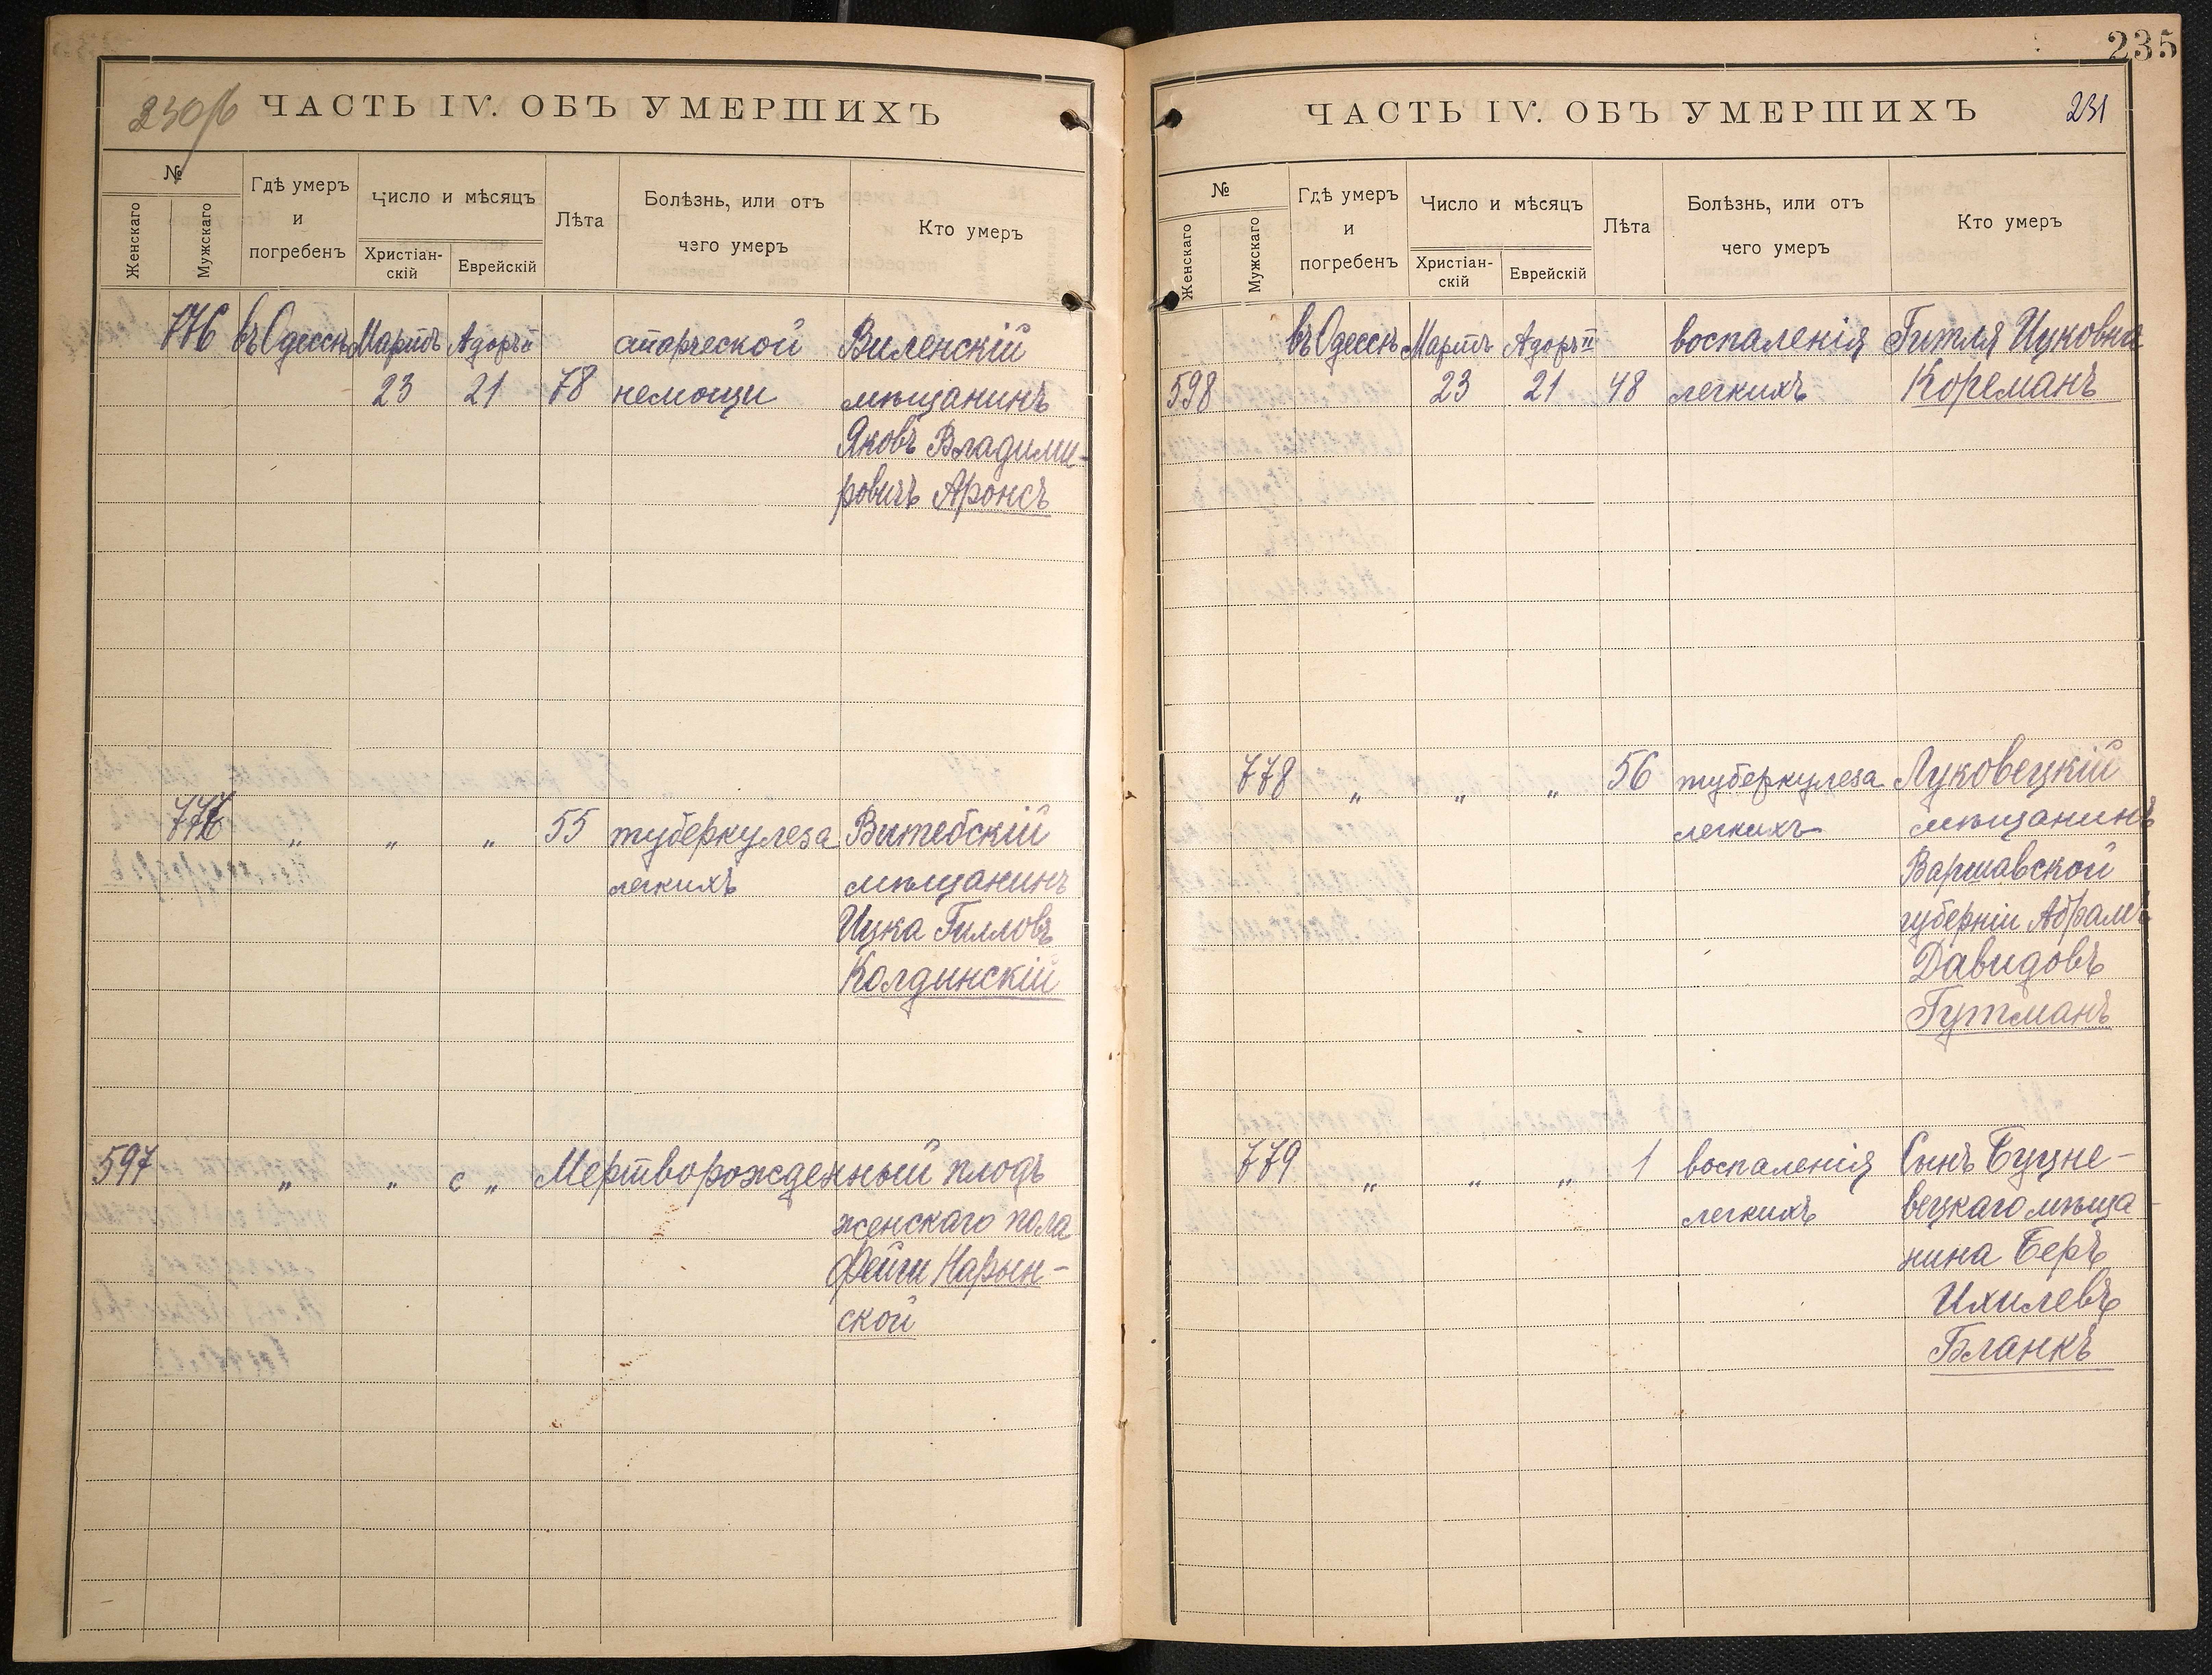 230/б ЧАСТЬ IV. ОБЪ УМЕРШИХЪ
№
Женскаго
Мужскаго
Гдѣ умеръ
и
погребенъ
Число и мѣсяцъ
Христіан-
скій
Еврейскій
Лѣта
Болѣзнь, или отъ
чего умеръ
Кто умеръ
776 въ Одессѣ Мартъ Адоръ II старческой Виленскій
23 21 78 немощи мѣщанинъ
Яковъ Владими-
ровичъ Аронсъ
777 „ „ „ 55 туберкулеза Витебскій
легкихъ мѣщанинъ
Ицка Гилловъ
Колдинскій
597 „ „ с „ Мертворожденный плодъ
женскаго пола
Фейги Нарын-
ской
235
ЧАСТЬ IV. ОБЪ УМЕРШИХЪ 231
№
Женскаго
Мужскаго
Гдѣ умеръ
и
погребенъ
Число и мѣсяцъ
Христіан-
скій
Еврейскій
Лѣта
Болѣзнь, или отъ
чего умеръ
Кто умеръ
въ Одессѣ Мартъ Адоръ II воспаленія Гитля Ицковна
598 23 21 48 легкихъ Кореманъ
778 „ „ „ 56 туберкулеза Луковецкій
легкихъ мѣщанинъ
Варшавской
губерніи Абрамъ
Давидовъ
Гутманъ
779 „ „ „ 1 воспаленія Сынъ Буцне-
легкихъ вецкаго мѣща-
нина Беръ
Ихилевъ
Бланкъ